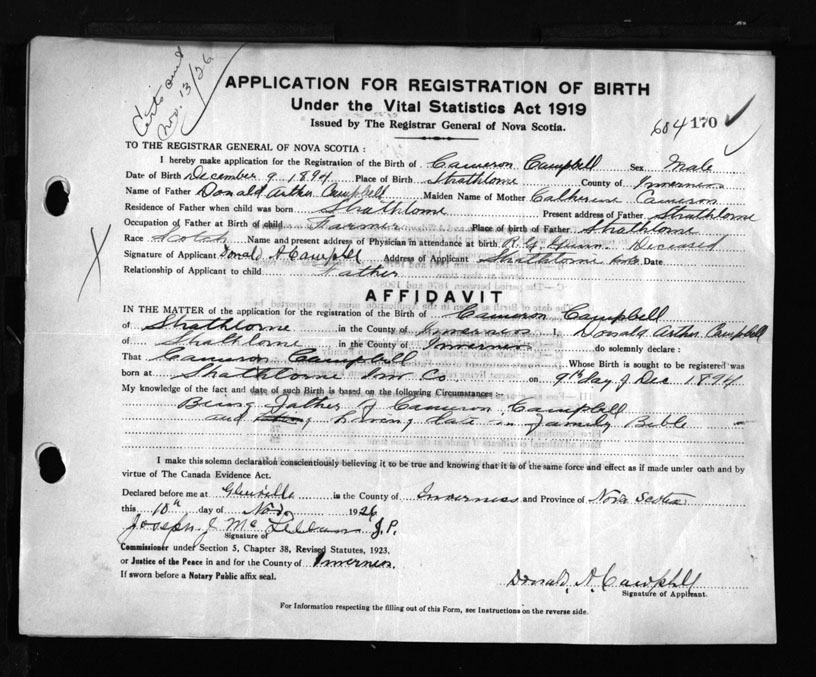 Certs out
Nov. 13/26
APPLICATION FOR REGISTRATION OF BIRTH
Under the Vital Statistics Act 1919
Issued by The Registrar General of Nova Scotia.
604 170
TO THE REGISTRAR GENERAL OF NOVA SCOTIA :
I hereby make application for the Registration of the Birth of Cameron Campbell Sex Male
Date of Birth December 9 1894 Place of Birth Strathlorne County of Inverness
Name of Father Donald Arthur Campbell Maiden Name of Mother Catherine Cameron
Residence of Father when child was born Strathlorne Present address of Father Strathlorne
Occupation of Father at Birth of child Farmer Place of birth of Father Strathlorne
Race Scotch Name and present address of Physician in attendance at birth Deceased
Signature of Applicant Donald A Campbell Address of Applicant Strathlorne Date
Relationship of Applicant to child Father
AFFIDAVIT
IN THE MATTER of the application for the registration of the Birth of Cameron Campbell
of Strathlorne in the County of Inverness I, Donald Arthur Campbell
of Strathlorne in the County of Inverness do solemnly declare :
That Cameron Campbell Whose Birth is sought to be registered was
born at Strathlorne Inv Co on 9th day of Dec 1894
My knowledge of the fact and date of such Birth is based on the following Circumstances :-
Being father of Cameron Campbell
and having date in family Bible
I make this solemn declaration conscientiously believing it to be true and knowing that it is of the same force and effect as if made under oath and by
virtue of The Canada Evidence Act.
Declared before me at Glenville in the County of Inverness and Province of Nova Scotia
this 10th day of Nov. 1926
Joseph J McLellan J.P.
Signature of
Commissioner under Section 5, Chapter 38, Revised Statutes, 1923,
or Justice of the Peace in and for the County of Inverness.
If sworn before a Notary Public affix seal.
Donald A. Campbell
Signature of Applicant.
For Information respecting the filling out of this Form, see Instructions on the reverse side.